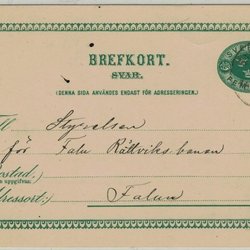 BREFKORT.
SVAR.
(DENNA SIDA ANVÄNDES ENDAST FÖR ADRESSERINGEN.)
Till Styrelsen
för Falu Rättviks banan
Bostad,
uppgifves)
Adressort:) Falun